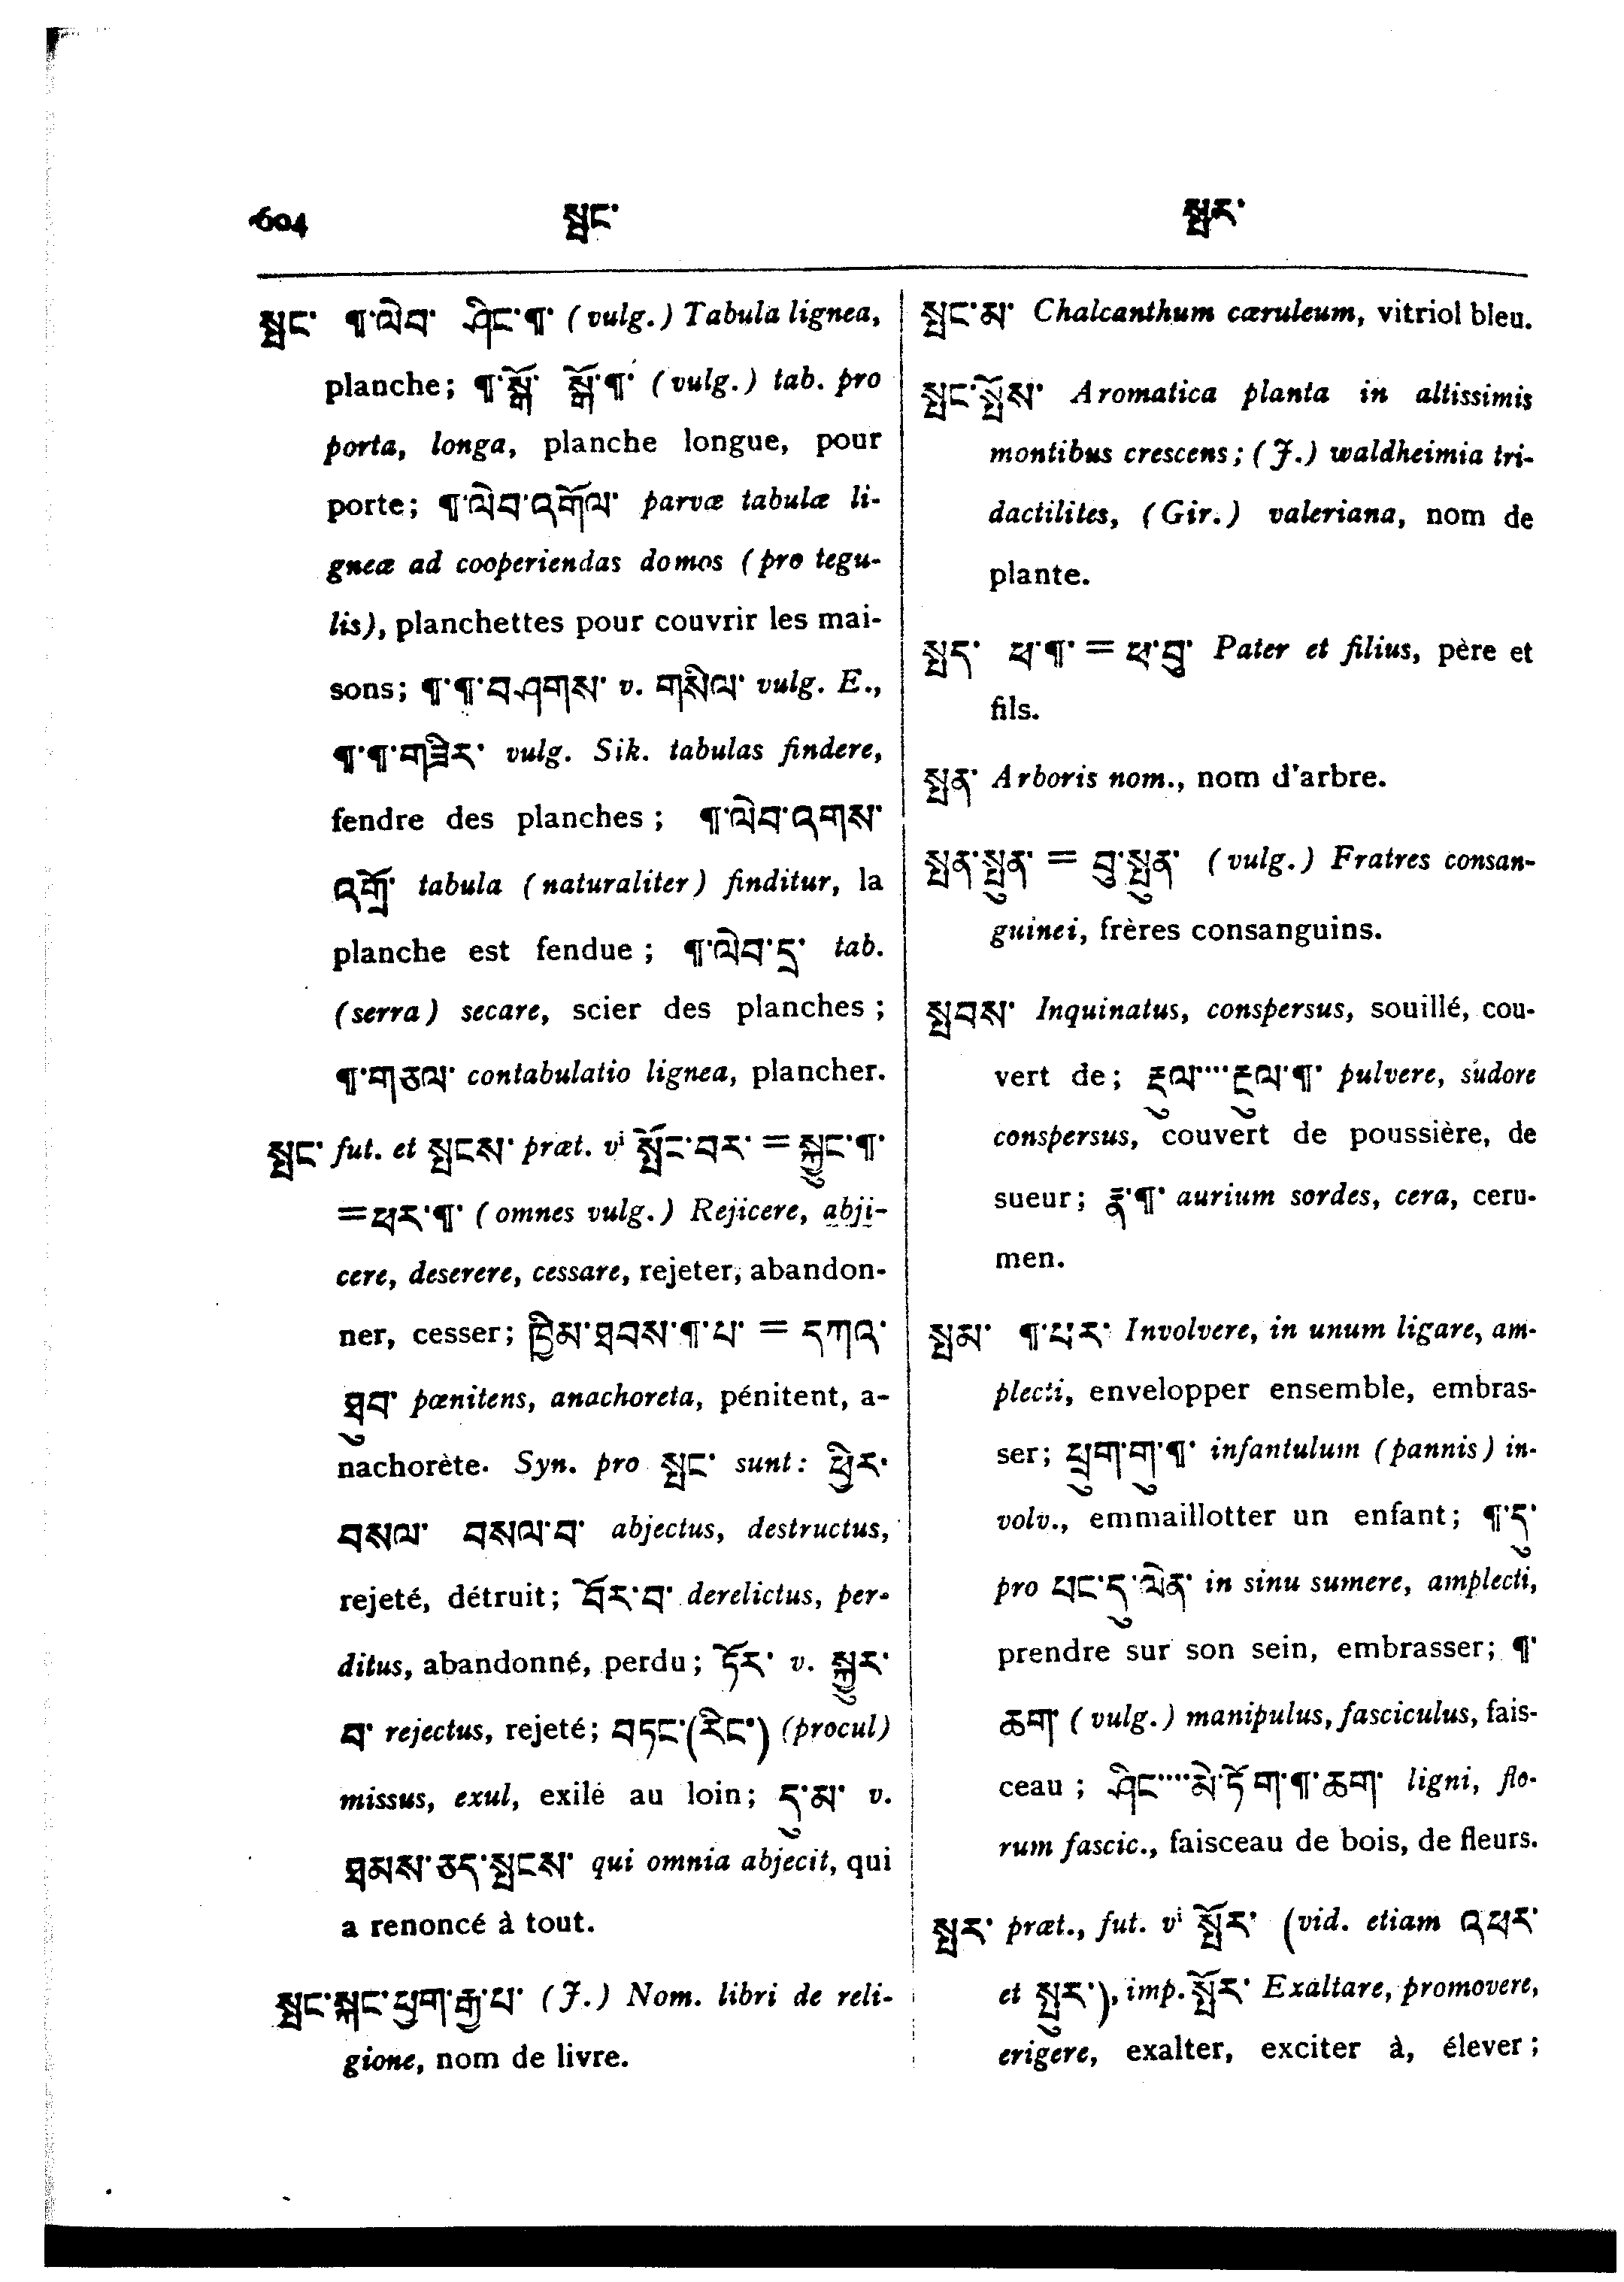 604 སྤང་ སྤར་
སྤང་ ¶་ལེབ་ ཤིང་¶་ (vulg.) Tabula lignea,
planche; ¶་སྒོ་ སྒོ་¶་ (vulg.) tab. pro
porta, longa, planche longue, pour
porte; ¶་ལེབ་འགོལ་ parvæ tabulæ li-
gneæ ad cooperiendas domos (pro tegu-
lis), planchettes pour couvrir les mai-
sons; ¶་¶་བཤགས་ v. གསིལ་ vulg. E.,
¶་¶་གཟེར་ vulg. Sik. tabulas findere,
fendre des planches; ¶་ལེབ་འགས་
འགྲོ་ tabula (naturaliter) finditur, la
planche est fendue; ¶་ལེབ་དྲ་ tab.
(serra) secare, scier des planches;
¶་གཅལ་ contabulatio lignea, plancher.
སྤང་ fut. et སྤངས་ præt. vⁱ སྤོང་བར་ = སྐྱུང་¶་
=ཕར་¶་ (omnes vulg.) Rejicere, abji-
cere, deserere, cessare, rejeter, abandon-
ner, cesser; ཁྱིམ་ཐབས་¶་པ་ = དཀའ་
ཐུབ་ pœnitens, anachoreta, pénitent, a-
nachorète. Syn. pro སྤང་ sunt: ཕྱིར་
བསལ་ བསལ་བ་ abjectus, destructus,
rejeté, détruit; བོར་བ་ derelictus, per-
ditus, abandonné, perdu; དོར་ v. སྐྱུར་
བ་ rejectus, rejeté; བཏང་(རིང་) (procul)
missus, exul, exilé au loin; དུ་མ་ v.
ཐམས་ཅད་སྤངས་ qui omnia abjecit, qui
a renoncé à tout.
སྤང་སྐང་ཕྱག་རྒྱ་པ་ (J.) Nom. libri de reli-
gione, nom de livre.
སྤང་མ་ Chalcanthum cæruleum, vitriol bleu.
སྤང་སྤོས་ Aromatica planta in altissimis
montibus crescens; (J.) waldheimia tri-
dactilites, (Gir.) valeriana, nom de
plante.
སྤད་ ཕ་¶་ = ཕ་བུ་ Pater et filius, père et
fils.
སྤན་ Arboris nom., nom d'arbre.
སྤན་སྤུན་ = བུ་སྤུན་ (vulg.) Fratres consan-
guinei, frères consanguins.
སྤབས་ Inquinatus, conspersus, souillé, cou-
vert de; རྡུལ་····རྔུལ་¶་ pulvere, sudore
conspersus, couvert de poussière, de
sueur; རྣ་¶་ aurium sordes, cera, ceru-
men.
སྤམ་ ¶་པར་ Involvere, in unum ligare, am-
plecti, envelopper ensemble, embras-
ser; ཕྲུག་གུ་¶་ infantulum (pannis) in-
volv., emmaillotter un enfant; ¶་དུ་
pro པང་དུ་ལེན་ in sinu sumere, amplecti,
prendre sur son sein, embrasser; ¶་
ཆག་ (vulg.) manipulus, fasciculus, fais-
ceau; ཤིང་····མེ་ཏོག་¶་ཆག་ ligni, flo-
rum fascic., faisceau de bois, de fleurs.
སྤར་ præt., fut. vⁱ སྤོར་ (vid. etiam འཕར་
et སྤུར་), imp. སྤོར་ Exaltare, promovere,
erigere, exalter, exciter à, élever;